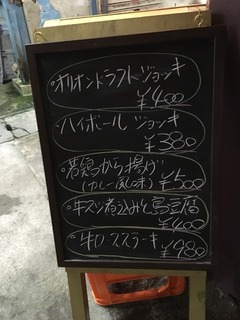 ・オリオンドラフトジョッキ
¥400
・ハイボール ジョッキ
¥380
・若鶏から揚げ
(カレー風味) ¥500
・牛スジ煮込みと島豆腐
¥400
・牛ロースステーキ
¥980